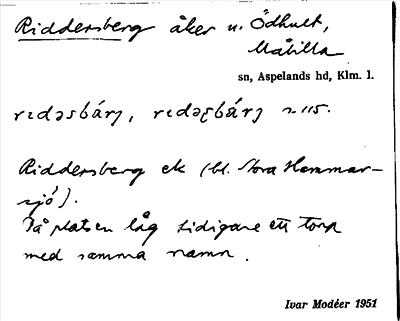 Riddersberg åker u. Ödhult,
Målilla
sn, Aspelands hd, Klm. l.
rɩdəsbárʒ, rɩdəʂbárʒ n 115.
Riddersberg ek (bl. Stora Hammar-
sjö).
På platsen låg tidigare ett torp
med samma namn.
Ivar Modéer 1951